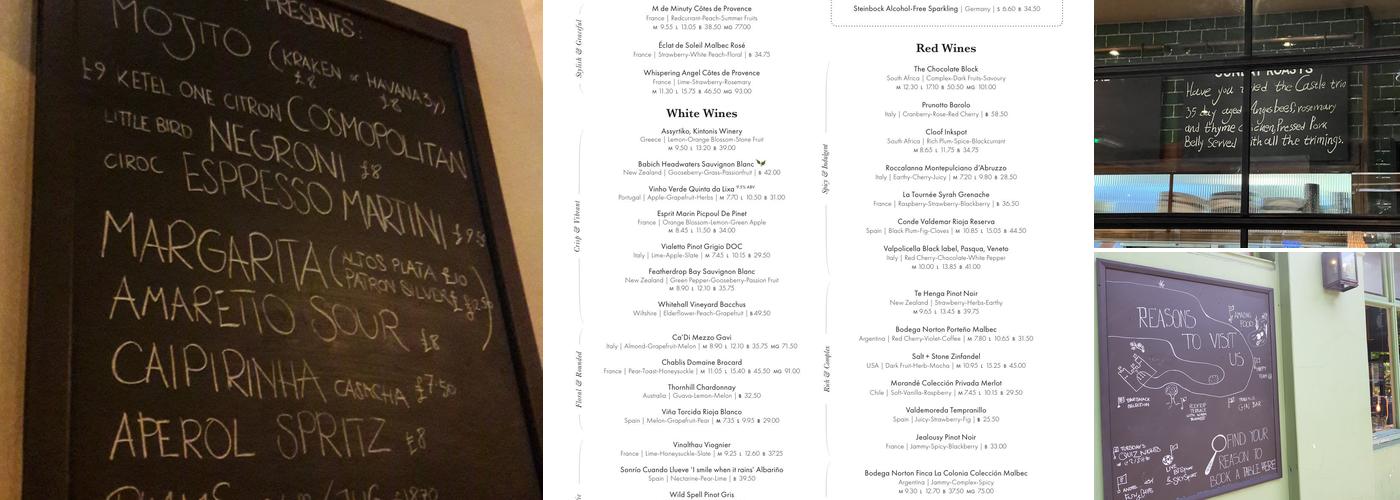 PRESENTS:
MOJITO (KRAKEN or HAVANA 3y)
£8 £8
£9 KETEL ONE CITRON COSMOPOLITAN
LITTLE BIRD NEGRONI £8
CIROC ESPRESSO MARTINI £9.5
MARGARITA (ALTOS PLATA £10
PATRON SILVER
AMARETTO SOUR £8
CAIPIRINHA CASACHA £7.50
APEROL SPRITZ £8
Stylish & Graceful
M de Minuty Côtes de Provence
France | Redcurrant-Peach-Summer Fruits
M 9.55 L 13.05 B 38.50 MG 77.00
Éclat de Soleil Malbec Rosé
France | Strawberry-White Peach-Floral | B 34.75
Whispering Angel Côtes de Provence
France | Lime-Strawberry-Rosemary
M 11.30 L 15.75 B 46.50 MG 93.00
White Wines
Crisp & Vibrant
Assyrtiko, Kintonis Winery
Greece | Lemon-Orange Blossom-Stone Fruit
M 9.50 L 13.20 B 39.00
Babich Headwaters Sauvignon Blanc
New Zealand | Gooseberry-Grass-Passionfruit | B 42.00
Vinho Verde Quinta da Lixa 9.5% ABV
Portugal | Apple-Grapefruit-Herbs | M 7.70 L 10.50 B 31.00
Esprit Marin Picpoul De Pinet
France | Orange Blossom-Lemon-Green Apple
M 8.45 L 11.50 B 34.00
Vialetto Pinot Grigio DOC
Italy | Lime-Apple-Slate | M 7.45 L 10.15 B 29.50
Featherdrop Bay Sauvignon Blanc
New Zealand | Green Pepper-Gooseberry-Passion Fruit
M 8.90 L 12.10 B 35.75
Whitehall Vineyard Bacchus
Wiltshire | Elderflower-Peach-Grapefruit | B 49.50
Floral & Rounded
Ca'Di Mezzo Gavi
Italy | Almond-Grapefruit-Melon | M 8.90 L 12.10 B 35.75 MG 71.50
Chablis Domaine Brocard
France | Pear-Toast-Honeysuckle | M 11.05 L 15.40 B 45.50 MG 91.00
Thornhill Chardonnay
Australia | Guava-Lemon-Melon | B 32.50
Viña Torcida Rioja Blanco
Spain | Melon-Grapefruit-Pear | M 7.35 L 9.95 B 29.00
Vinalthau Viognier
France | Lime-Honeysuckle-Slate | M 9.25 L 12.60 B 37.25
Sonrío Cuando Llueve 'I smile when it rains' Albariño
Spain | Nectarine-Pear-Lime | B 39.50
Wild Spell Pinot Gris
Steinbock Alcohol-Free Sparkling | Germany | S 6.60 B 34.50
Red Wines
Spicy & Indulgent
The Chocolate Block
South Africa | Complex-Dark Fruits-Savoury
M 12.30 L 17.10 B 50.50 MG 101.00
Prunotto Barolo
Italy | Cranberry-Rose-Red Cherry | B 58.50
Cloof Inkspot
South Africa | Rich Plum-Spice-Blackcurrant
M 8.65 L 11.75 B 34.75
Roccalanna Montepulciano d'Abruzzo
Italy | Earthy-Cherry-Juicy | M 7.20 L 9.80 B 28.50
La Tournée Syrah Grenache
France | Raspberry-Strawberry-Blackberry | B 36.50
Conde Valdemar Rioja Reserva
Spain | Black Plum-Fig-Cloves | M 10.85 L 15.05 B 44.50
Valpolicella Black label, Pasqua, Veneto
Italy | Red Cherry-Chocolate-White Pepper
M 10.00 L 13.85 B 41.00
Rich & Complex
Te Henga Pinot Noir
New Zealand | Strawberry-Herbs-Earthy
M 9.65 L 13.45 B 39.75
Bodega Norton Porteño Malbec
Argentina | Red Cherry-Violet-Coffee | M 7.80 L 10.65 B 31.50
Salt + Stone Zinfandel
USA | Dark Fruit-Herb-Mocha | M 10.95 L 15.25 B 45.00
Morandé Colección Privada Merlot
Chile | Soft-Vanilla-Raspberry | M 7.45 L 10.15 B 29.50
Valdemoreda Tempranillo
Spain | Juicy-Strawberry-Fig | B 25.50
Jealousy Pinot Noir
France | Jammy-Spicy-Blackberry | B 33.00
Bodega Norton Finca La Colonia Colección Malbec
Argentina | Jammy-Complex-Spicy
M 9.30 L 12.70 B 37.50 MG 75.00
SUNDAY ROASTS
Have you tried the Castle trio
35 day aged Angus beef, rosemary
and thyme chicken, Pressed Pork
Belly Served with all the trimings.
REASONS
TO VISIT
US
AMAZING
FOOD
HAPPY
TEAM
GIN BAR
TUESDAY'S
QUIZ NIGHT
LIVE
FIND YOUR
REASON TO
BOOK A TABLE HERE